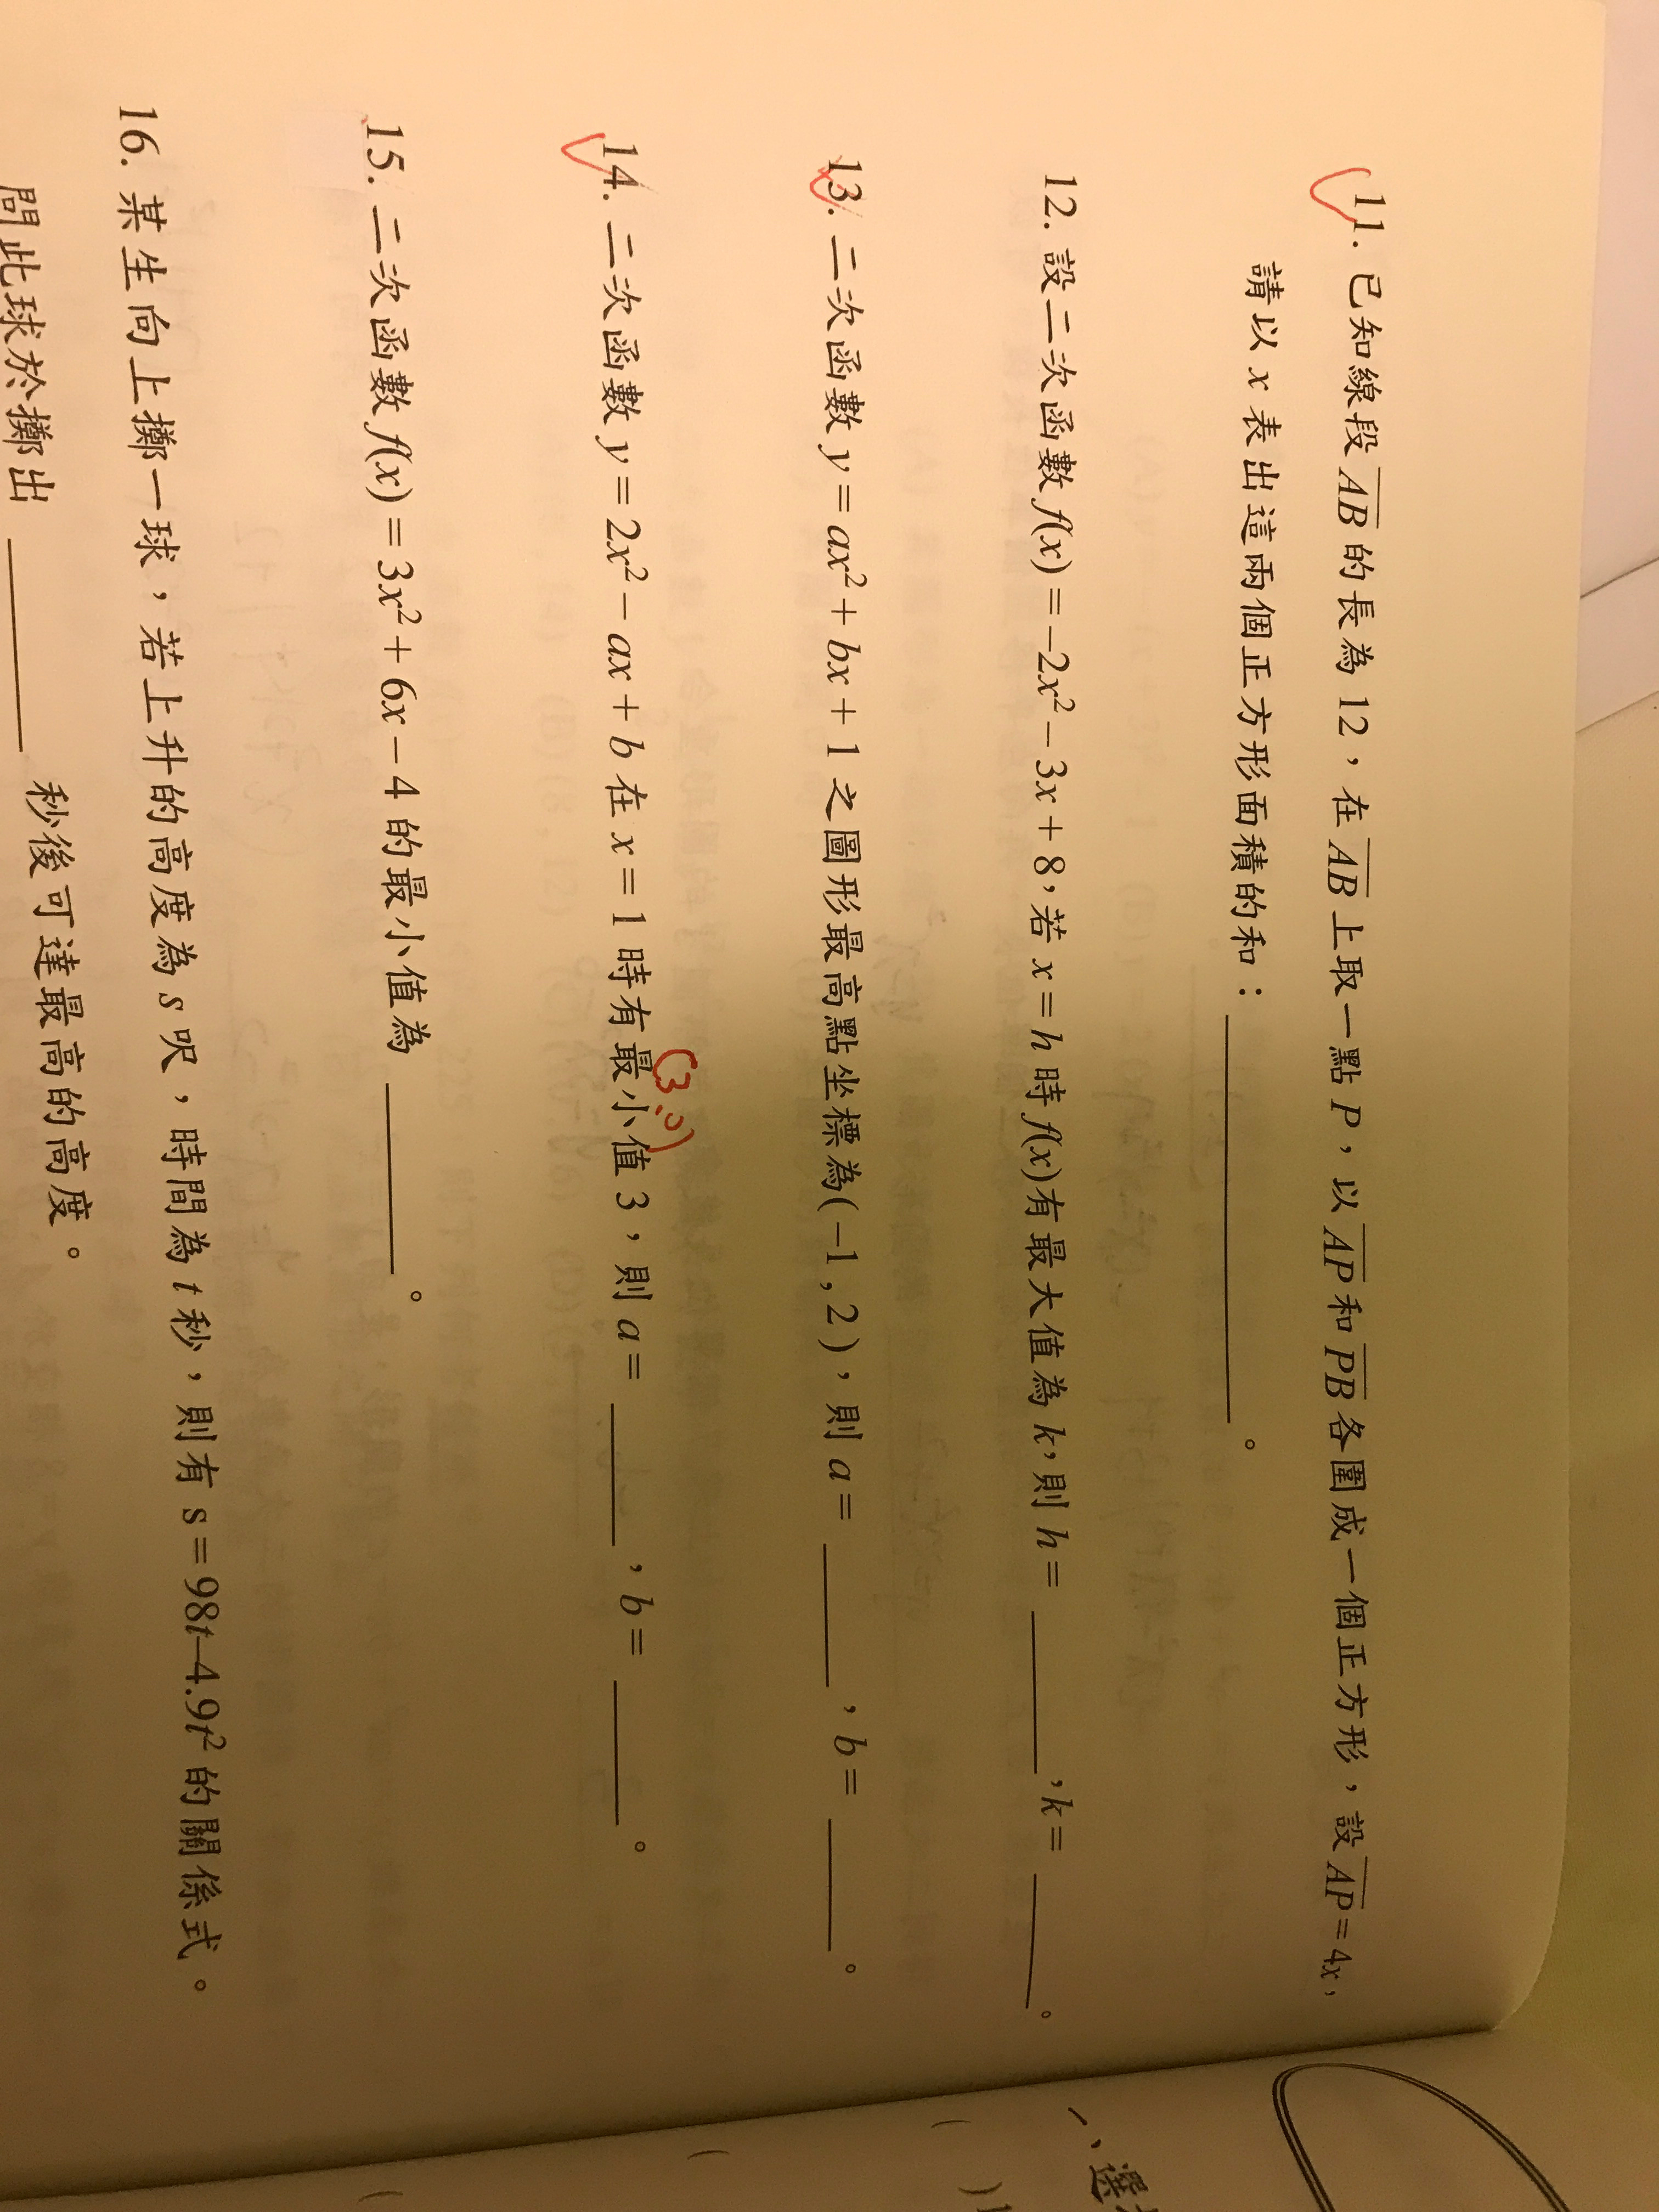 11. 已知線段 AB 的長為 12，在 AB 上取一點 P，以 AP 和 PB 各圍成一個正方形，設 AP = 4x，
請以 x 表出這兩個正方形面積的和：________。
12. 設二次函數 f(x) = −2x² − 3x + 8，若 x = h 時 f(x) 有最大值為 k，則 h = ________，k = ________。
13. 二次函數 y = ax² + bx + 1 之圖形最高點坐標為(−1 , 2)，則 a = ________，b = ________。
(3,0)
14. 二次函數 y = 2x² − ax + b 在 x = 1 時有最小值 3，則 a = ________，b = ________。
15. 二次函數 f(x) = 3x² + 6x − 4 的最小值為 ________。
16. 某生向上擲一球，若上升的高度為 s 呎，時間為 t 秒，則有 s = 98t−4.9t² 的關係式。
問此球於擲出 ________ 秒後可達最高的高度。
一、選